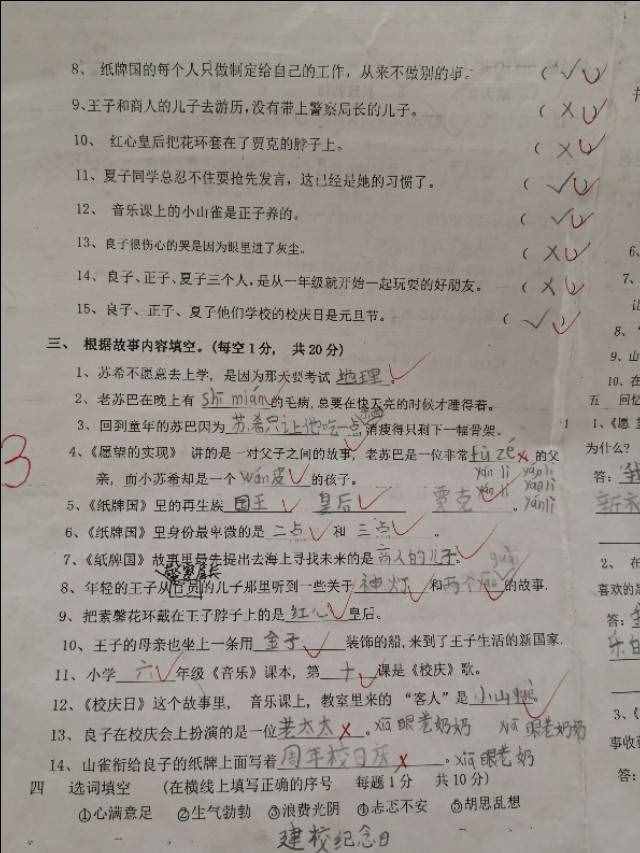 8、纸牌国的每个人只做制定给自己的工作，从来不做别的事。 （ √ ）
9、王子和商人的儿子去游历，没有带上警察局长的儿子。 （ X ）
10、 红心皇后把花环套在了贾克的脖子上。 （ X ）
11、夏子同学总忍不住要抢先发言，这已经是她的习惯了。 （ √ ）
12、 音乐课上的小山雀是正子养的。 （ √ ）
13、良子很伤心的哭是因为眼里进了灰尘。 （ X ）
14、良子、正子、夏子三个人，是从一年级就开始一起玩耍的好朋友。 （ X ）
15、良子、正子、夏子他们学校的校庆日是元旦节。 （ √ ）
三、 根据故事内容填空。(每空1分， 共20分)
1、苏希不愿意去上学，是因为那天要考试 地理 。
2、老苏巴在晚上有 shī mián 的毛病，总要在快天亮的时候才睡得着。
3、回到童年的苏巴因为 苏希只让他吃一点 消瘦得只剩下一幅骨架。
4、《愿望的实现》 讲的是一对父子之间的故事，老苏巴是一位非常 fù zé 的父
亲，而小苏希却是一个 wán皮 的孩子。
5、《纸牌国》里的再生族 国王 皇后 贾克 。
6、《纸牌国》里身份最卑微的是 二点 和 三点 。
7、《纸牌国》故事里最先提出去海上寻找未来的是 商人的儿子
8、年轻的王子从官员的儿子那里听到一些关于 神灯 和 两个 的故事.
9、把素馨花环戴在王子脖子上的是 红心 皇后。
10、王子的母亲也坐上一条用 金子 装饰的船,来到了王子生活的新国家.
11、小学 六 年级《音乐》课本，第 十 课是《校庆》歌。
12、《校庆日》这个故事里， 音乐课上，教室里来的 “客人”是 小山
13、良子在校庆会上扮演的是一位 老太太 。 xiā 眼老奶奶 xiā 眼老奶奶
14、山雀衔给良子的纸牌上面写着 周年校日庆 。 xiā 眼老奶
四 选词填空 (在横线上填写正确的序号 每题1分 共10分)
①心满意足 ②生气勃勃 ③浪费光阴 ④忐忑不安 ⑤胡思乱想
建校纪念日
3
为什么？
答：
喜欢的
答：
事收
答：